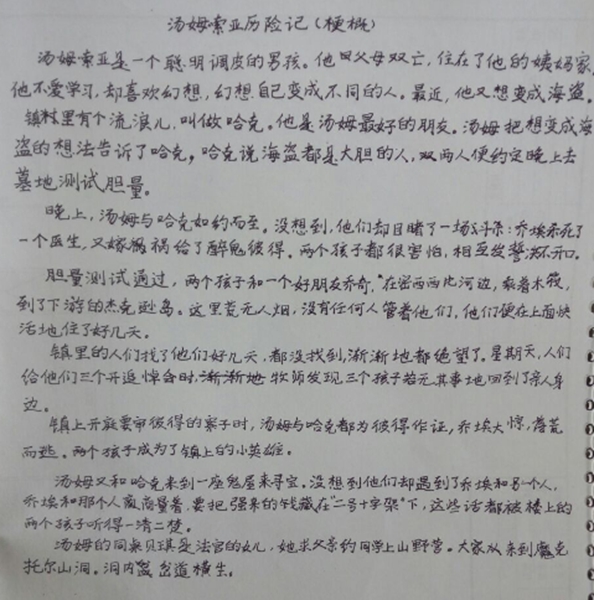 汤姆索亚历险记(梗概)
汤姆索亚是一个聪明调皮的男孩。他因父母双亡,住在了他的姨妈家,
他不爱学习,却喜欢幻想,幻想自己变成不同的人。最近,他又想变成海盗。
镇村里有个流浪儿,叫做哈克。他是汤姆最好的朋友。汤姆把想变成海
盗的想法告诉了哈克,哈克说海盗都是大胆的人,双两人便约定晚上去
墓地测试胆量。
晚上,汤姆与哈克如约而至。没想到,他们却目睹了一场:乔埃杀死了
一个医生,又嫁祸给了醉鬼彼得。两个孩子都很害怕,相互发誓决不开口。
胆量测试通过,两个孩子和一个好朋友乔奇,在密西西比河边,乘着木筏,
到了下游的杰克逊岛。这里荒无人烟,没有任何人管着他们,他们便在上面快
活地住了好几天。
镇里的人们找了他们好几天,都没找到,渐渐地都绝望了。星期天,人们
给他们三个开追悼会时,渐渐地牧师发现三个孩子若无其事地回到了亲人身
边。
镇上开庭要审彼得的案子时,汤姆与哈克都为彼得作证,乔埃大惊,落荒
而逃。两个孩子成为了镇上的小英雄。
汤姆又和哈克来到一座鬼屋来寻宝。没想到他们却遇到了乔埃和另一个人,
乔埃和那个人商量着,要把强来的钱藏在"二号十字架"下,这些话都被楼上的
两个孩子听得一清二楚。
汤姆的同桌贝琪是法官的女儿,她求父亲约同学上山野营。大家来到魔克
托尔山洞。洞内岔道横生,